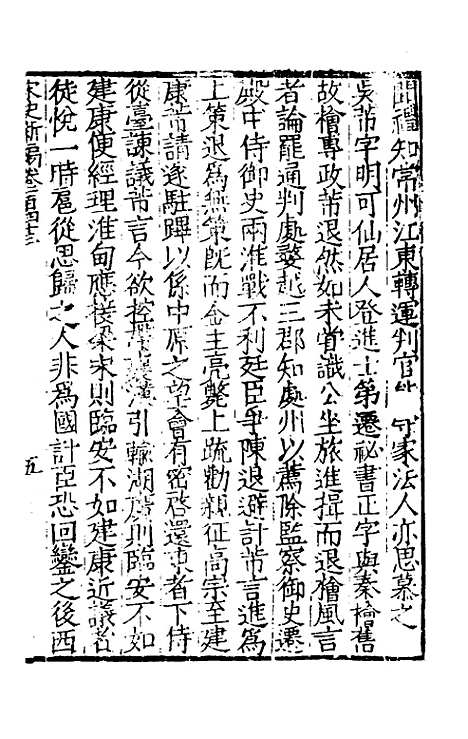 聞禮知常州江東轉運判官 守家法人亦思慕之
吳芾字明可仙居人登進士第遷祕書正字與秦檜舊
故檜專政芾退然如未嘗識公坐旅進揖而退檜風言
者論罷通判處婺越三郡知處州以薦除監察御史遷
殿中侍御史兩淮戰不利廷臣爭陳退避計芾言進爲
上策退爲無策旣而金主亮斃上疏勸親征高宗至建
康芾請遂駐蹕以係中原之望會有密啓還東者下侍
從臺諫議芾言今欲控帶襄漢引輸湖廣則臨安不如
建康便經理淮甸應接梁宋則臨安不如建康近議者
徒悅一時扈從思歸之人非爲國計臣恐回鑾之後西
宋史新編卷一百四十三 五